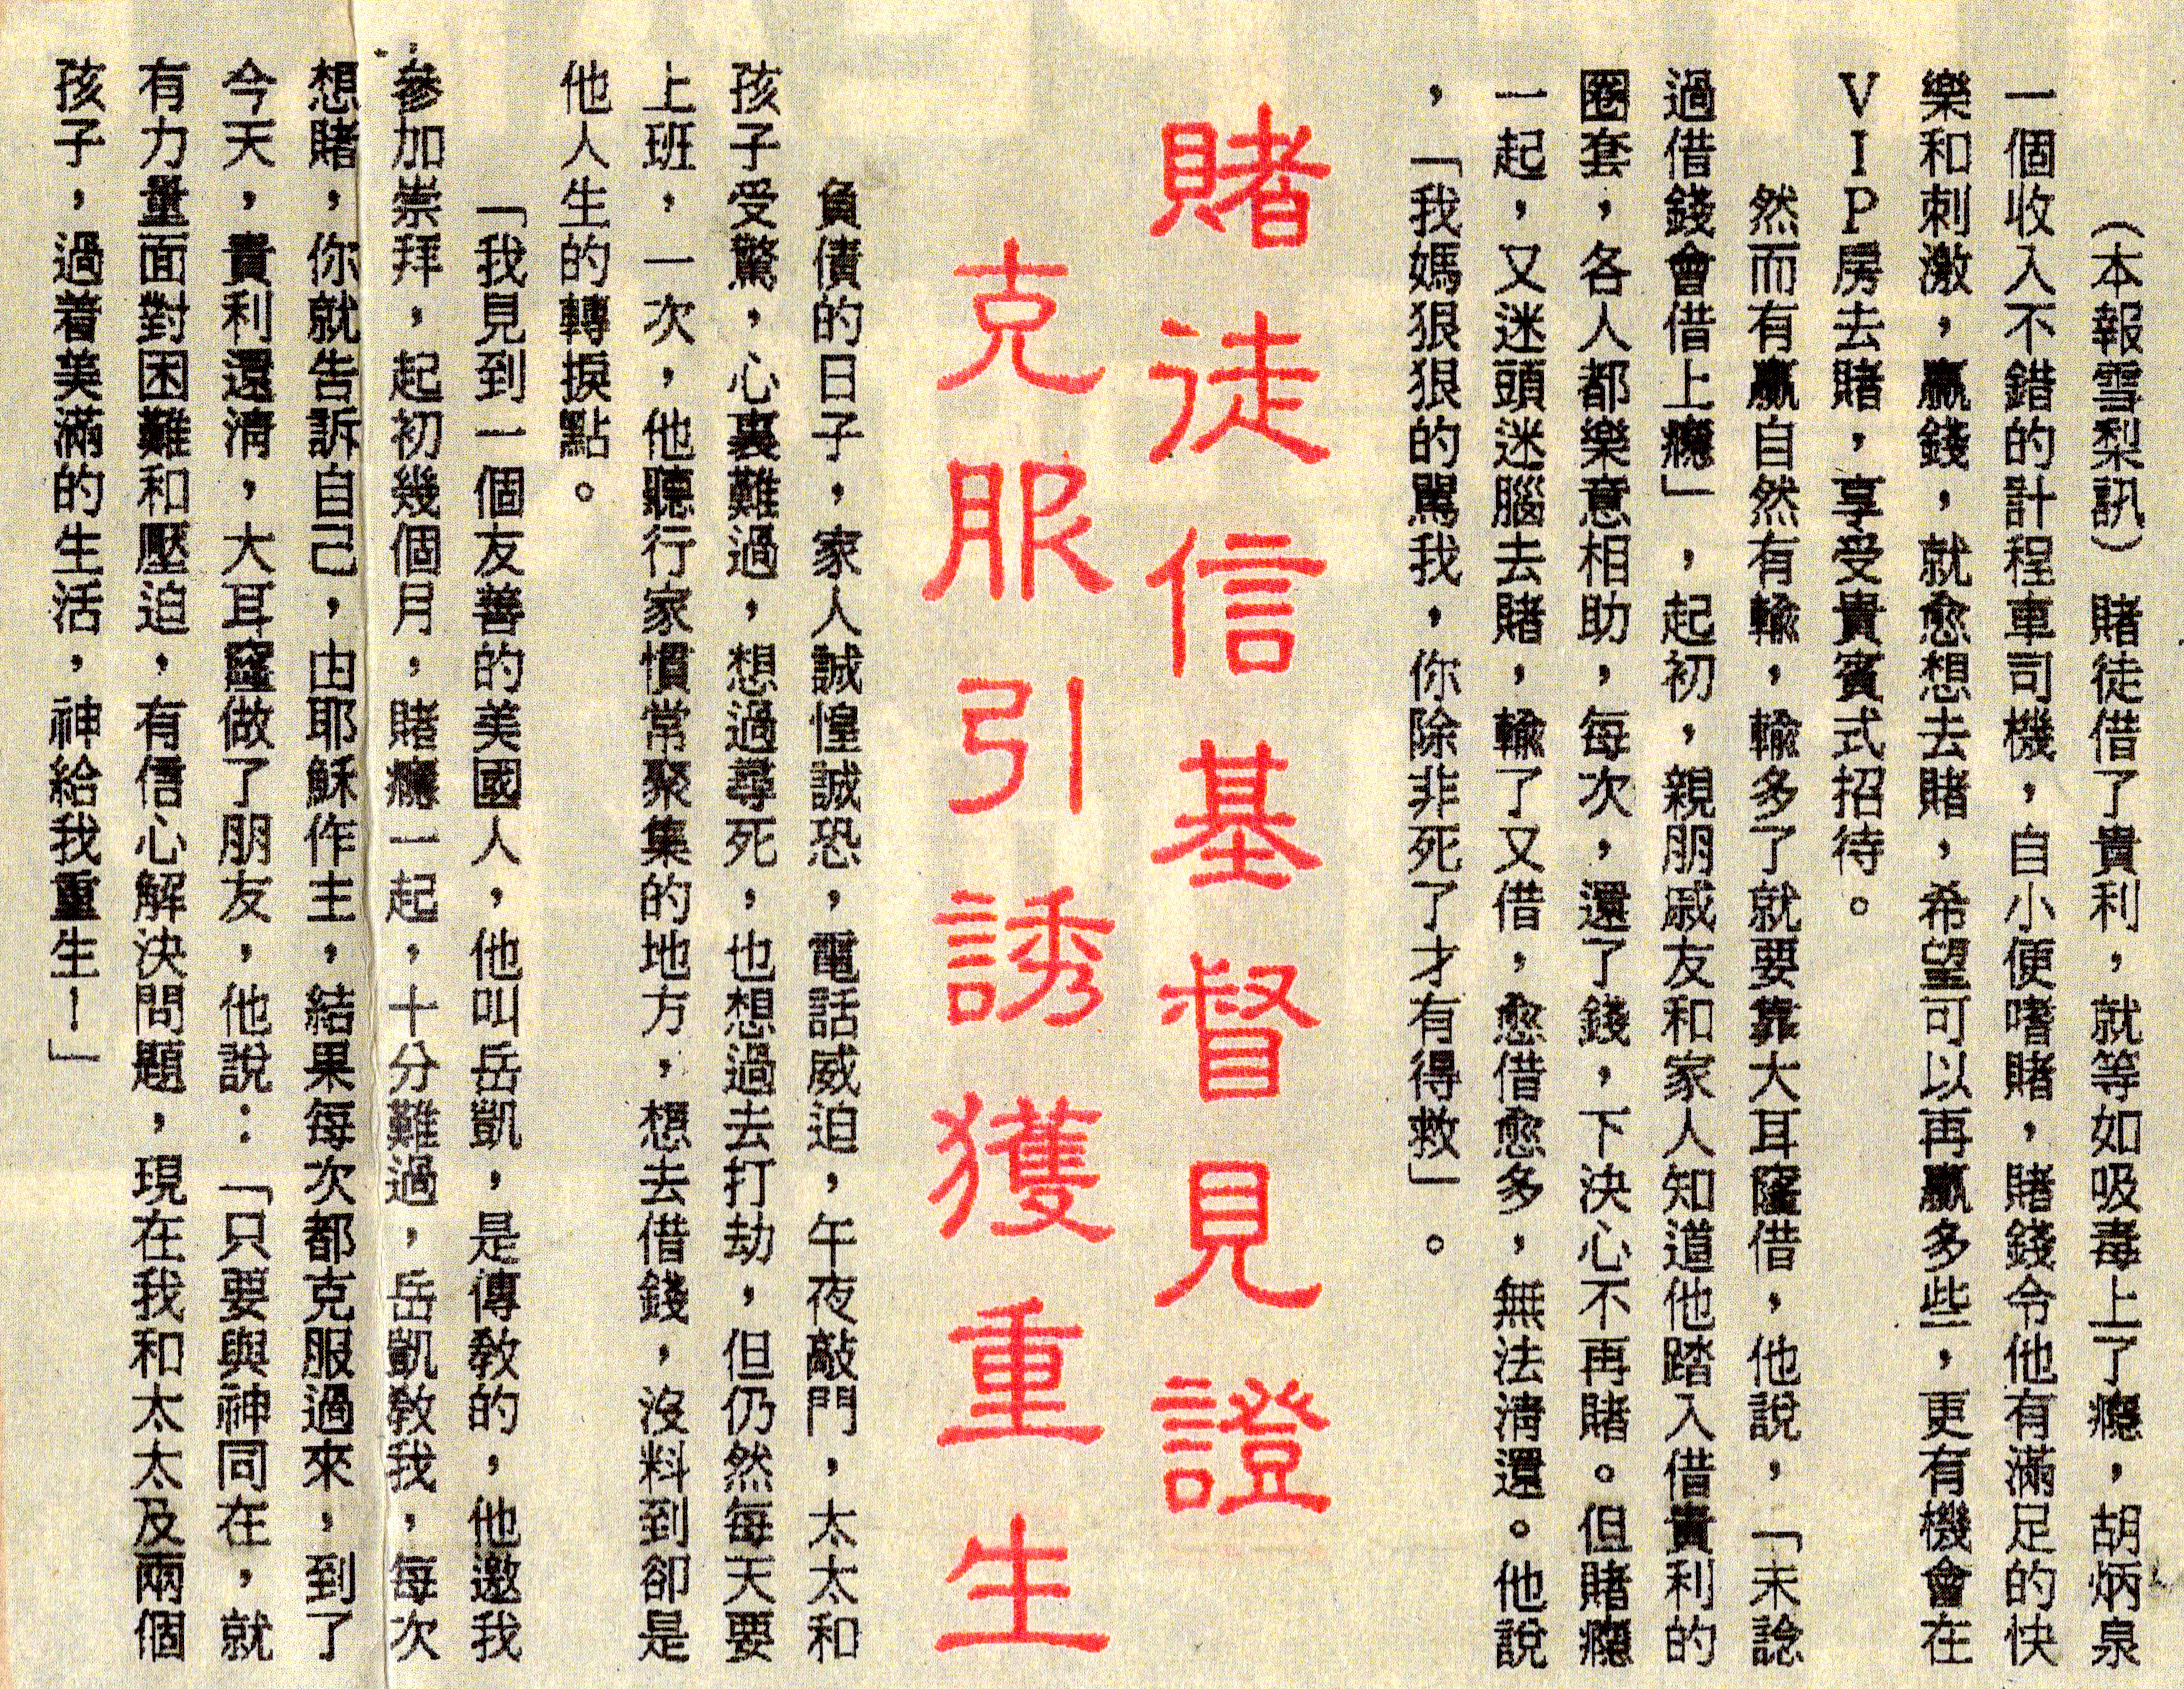 （本報雪梨訊）賭徒借了貴利，就等如吸毒上了癮，胡炳泉
一個收入不錯的計程車司機，自小便嗜賭，賭錢令他有滿足的快
樂和刺激，贏錢，就愈想去賭，希望可以再贏多些，更有機會在
VIP房去賭，享受貴賓式招待。
然而有贏自然有輸，輸多了就要靠大耳窿借，他說，「未諗
過借錢會借上癮」，起初，親朋戚友和家人知道他踏入借貴利的
圈套，各人都樂意相助，每次，還了錢，下決心不再賭。但賭癮
一起，又迷頭迷腦去賭，輸了又借，愈借愈多，無法清還。他說
，「我媽狠狠的罵我，你除非死了才有得救」。
賭徒信基督見證
克服引誘獲重生
負債的日子，家人誠惶誠恐，電話威迫，午夜敲門，太太和
孩子受驚，心裏難過，想過尋死，也想過去打劫，但仍然每天要
上班，一次，他聽行家慣常聚集的地方，想去借錢，沒料到卻是
他人生的轉捩點。
「我見到一個友善的美國人，他叫岳凱，是傳教的，他邀我
參加崇拜，起初幾個月，賭癮一起，十分難過，岳凱教我，每次
想賭，你就告訴自己，由耶穌作主，結果每次都克服過來，到了
今天，貴利還清，大耳窿做了朋友，他說：「只要與神同在，就
有力量面對困難和壓迫，有信心解決問題，現在我和太太及兩個
孩子，過着美滿的生活，神給我重生！」